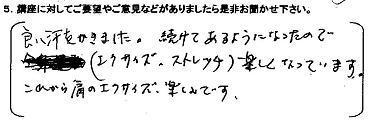 5. 講座に対してご要望やご意見などがありましたら是非お聞かせ下さい。
良い汗をかきました。続けてあるようになったので
(エクササイズ、ストレッチ)楽しくなっています。
これから肩のエクササイズ、楽しみです。